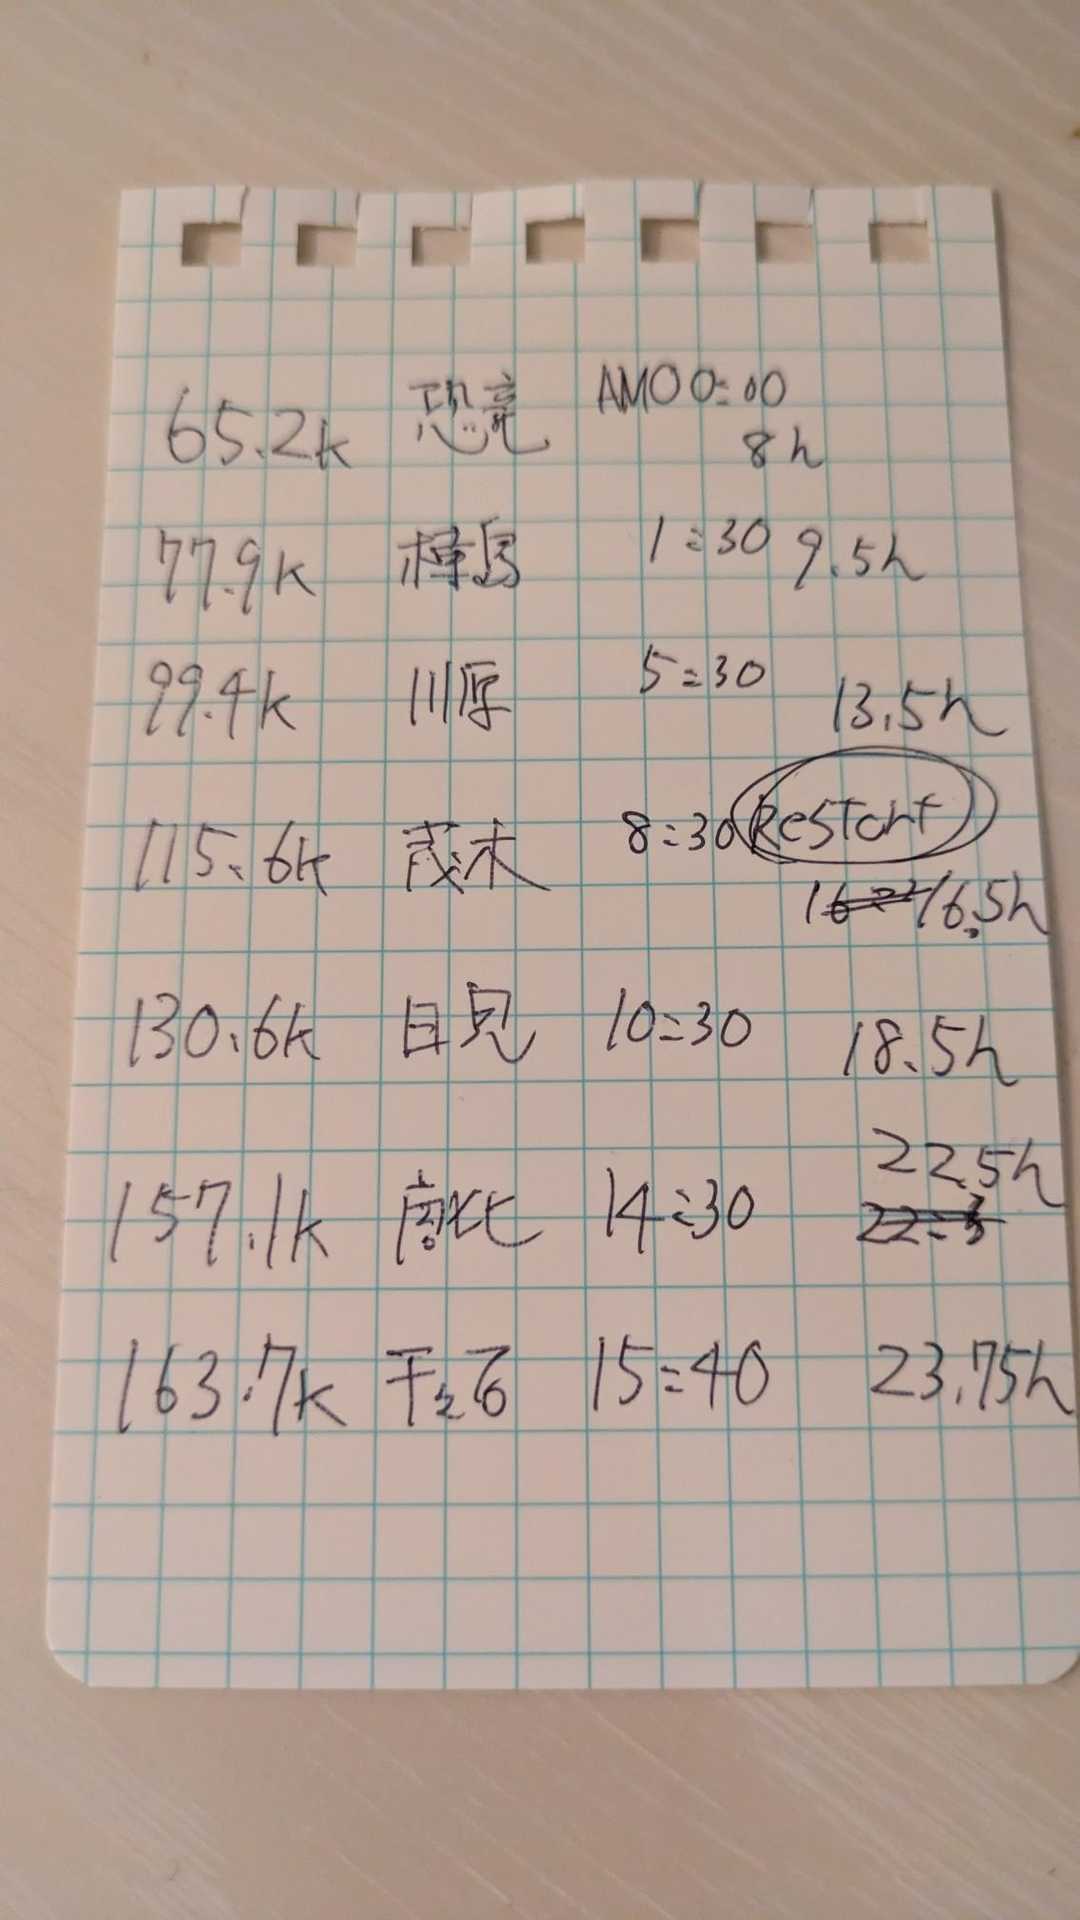 65.2k 恐竜 AM00:00
8h
77.9k 樺島 1:30 9.5h
99.4k 川原 5:30 13.5h
115.6k 茂木 8:30 Restart
16.5h
130.6k 日見 10:30 18.5h
157.1k 14:30 22.5h
163.7k 千々石 15:40 23.75h